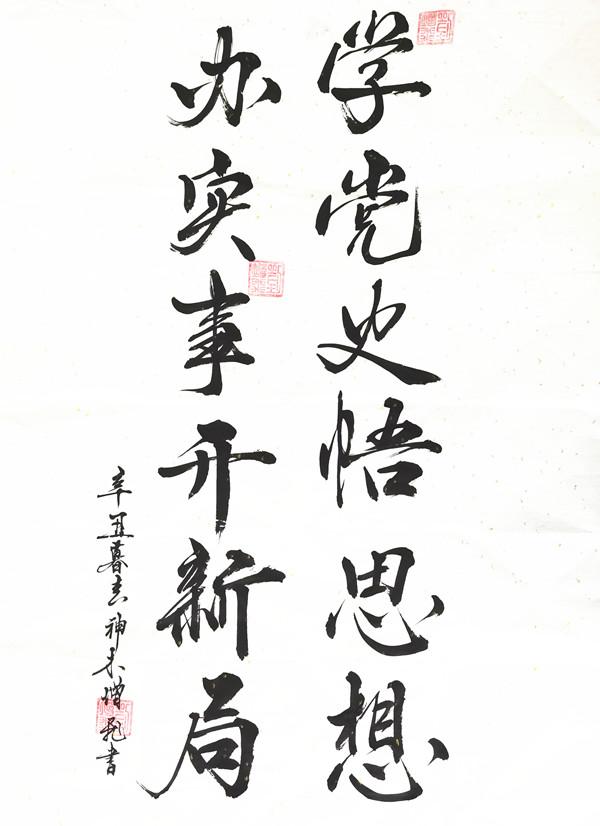 学党史悟思想
办实事开新局
辛丑暮书